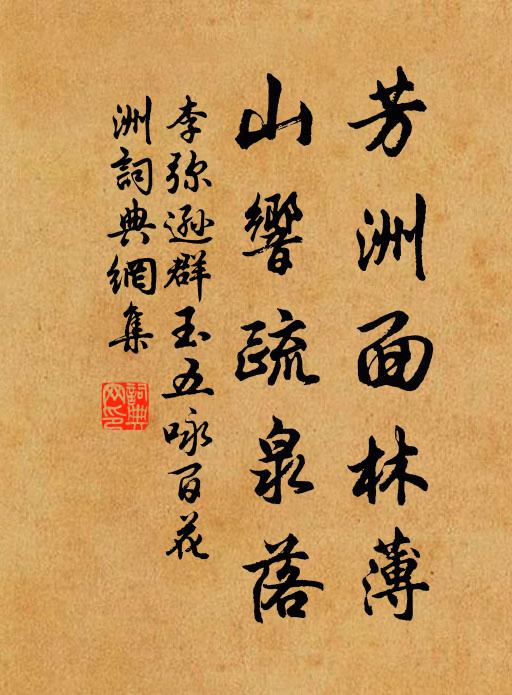 芳洲面林薄
山響疏泉落
李弥遜群玉五咏百花
洲詞典網集
詞典网印